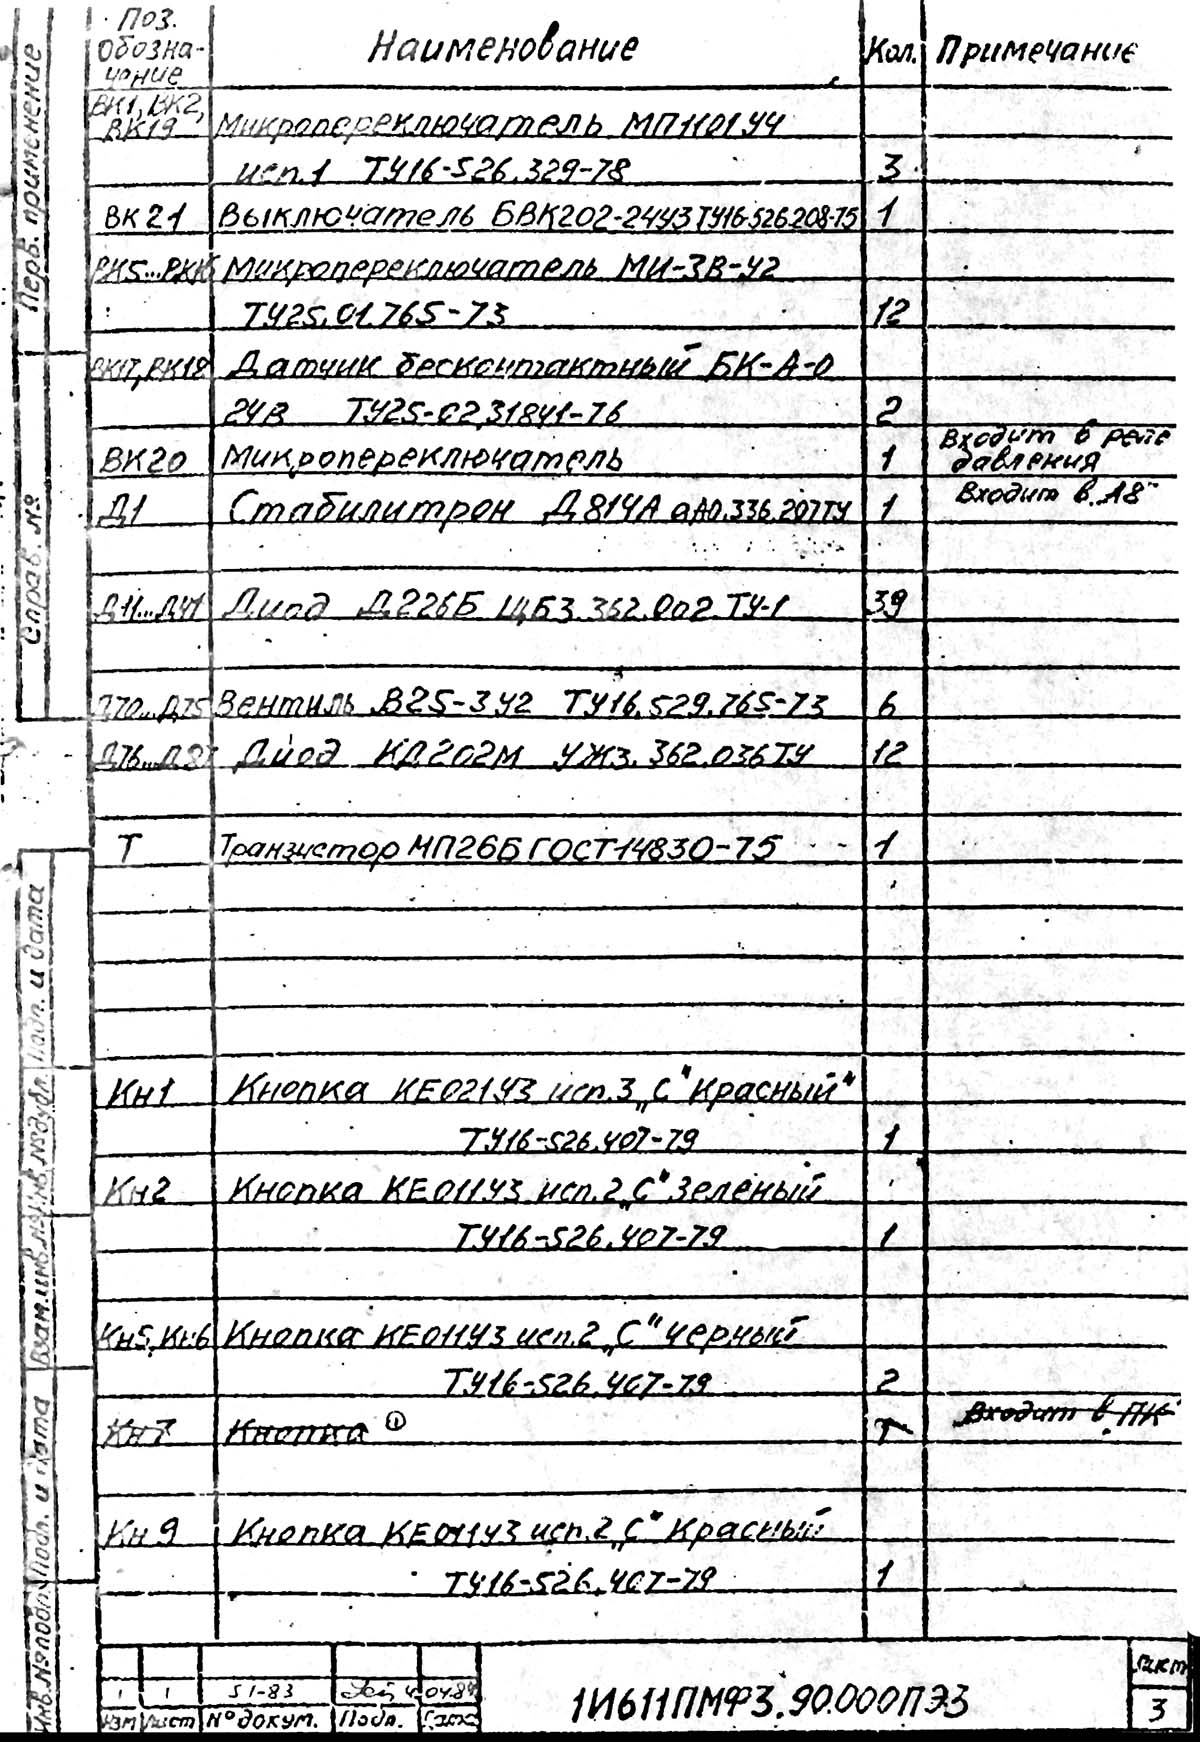 Поз. Обозначение Наименование Кол. Примечание
ВК1, ВК2,
ВК19 Микропереключатель МП1101У4
исп.1 ТУ16-526.329-78 3
ВК21 Выключатель БВК202-24У3 ТУ16-526.208-75 1
Микропереключатель МИ-3В-У2
ТУ25.01.765-73 12
ВК17, ВК18 Датчик бесконтактный БК-А-0
24В ТУ25-02.31841-76 2
ВК20 Микропереключатель 1 Входит в реле давления
Д1 Стабилитрон Д814А аА0.336.207ТУ 1 Входит в А8
Д11...Д41 Диод Д226Б ЩБ3.362.002.ТУ-1 39
Д70...Д75 Вентиль В25-3У2 ТУ16.529.765-73 6
Диод КД202М УЖ3.362.036ТУ 12
Т Транзистор МП26Б ГОСТ14830-75 1
Кн1 Кнопка КЕ021У3 исп.3 „С“ Красный"
ТУ16-526.407-79 1
Кн2 Кнопка КЕ011У3 исп.2 „С“ Зелёный
ТУ16-526.407-79 1
Кн5, Кн6 Кнопка КЕ011У3 исп.2 „С“ черный
ТУ16-526.407-79 2
Кн7 Кнопка ① 1 Входит в ПК
Кн9 Кнопка КЕ011У3 исп.2 „С“ Красный
ТУ16-526.407-79 1
Перв. применение
Справ. №
Подп. и дата
Инв. № дубл.
Взам.инв.№
Подп. и дата
Инв. № подл.
1 1 51-83 04.84
Изм Лист № докум. Подп. Дата
1И611ПМФ3.90.000ПЭ3
Лист
3